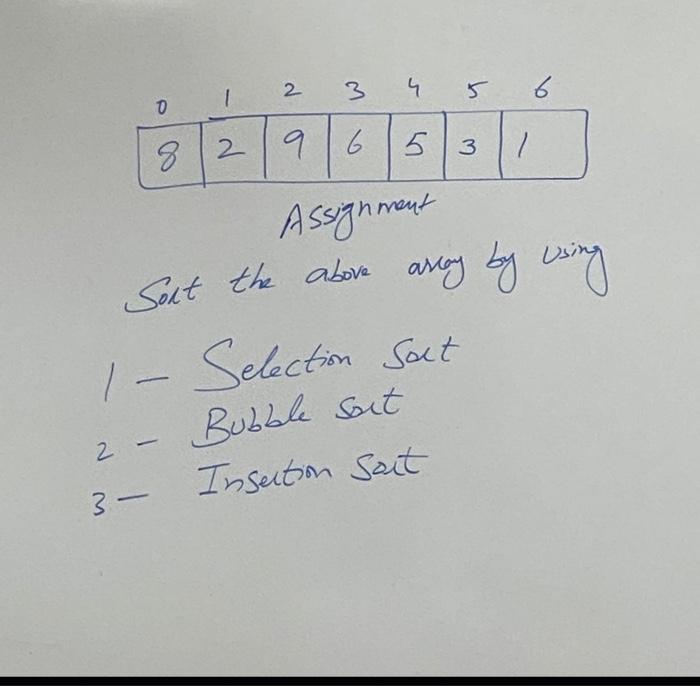 0 1 2 3 4 5 6
8 2 9 6 5 3 1
Assignment
Sort the above array by using
1 - Selection Sort
2 - Bubble sort
3 - Insertion Sort